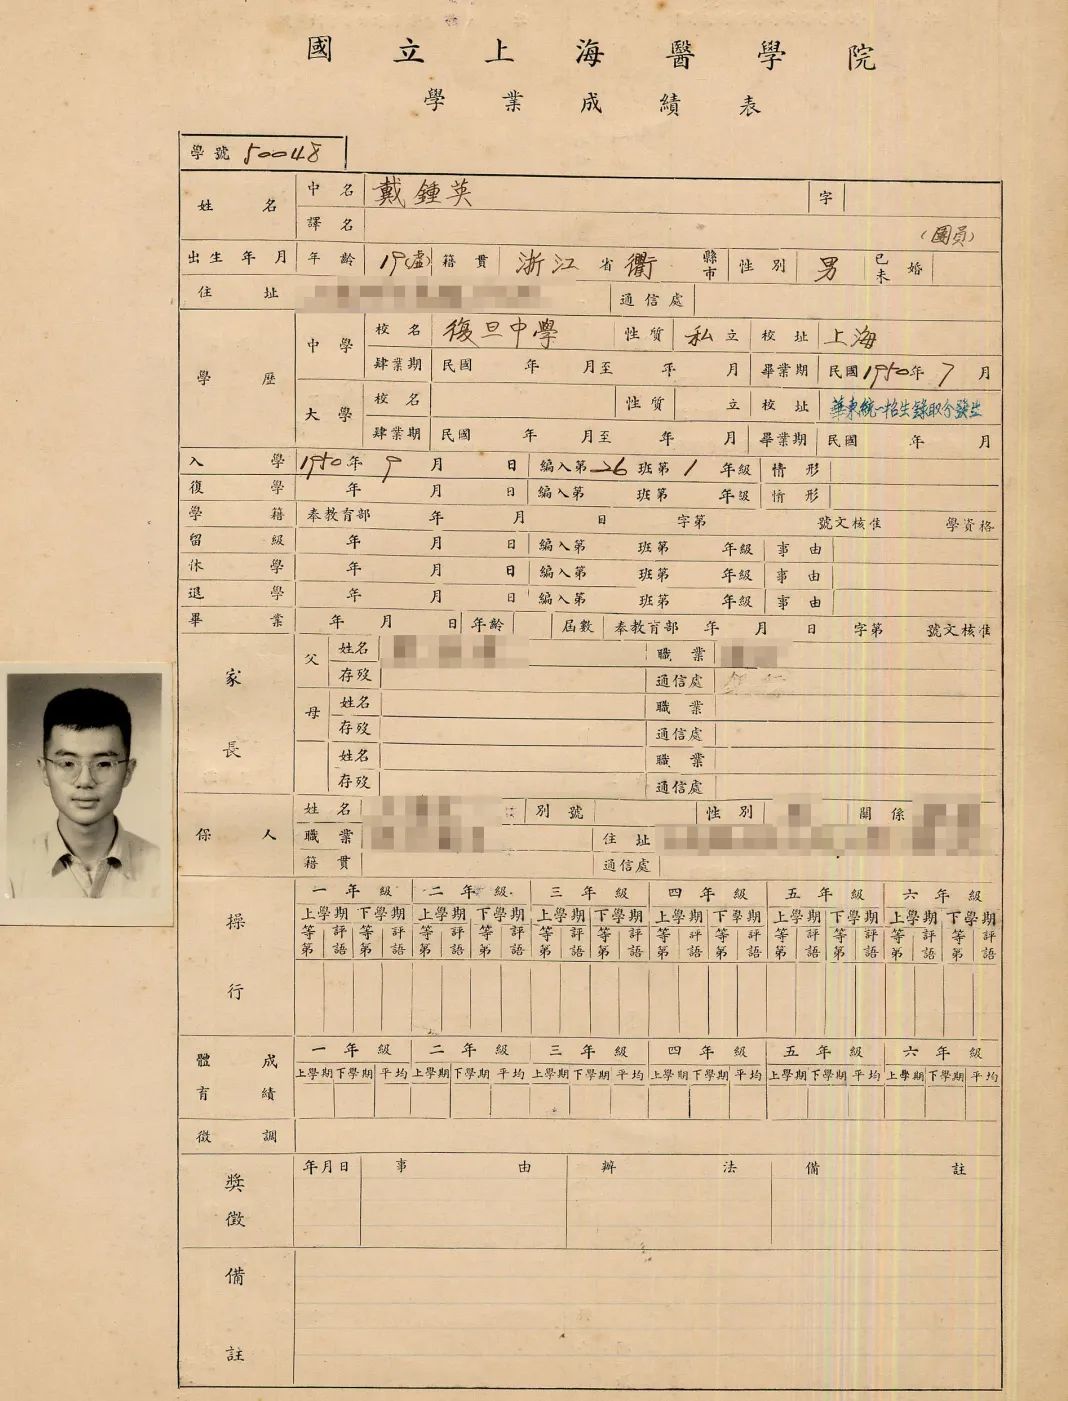 國立上海醫學院
學業成績表
學號 50048
姓名 中名 戴鍾英 字
譯名
(團員)
出生年月 年齡 19(虛) 籍貫 浙江省衢 縣市 性別 男 已未婚
住址 通信處
學歷 中學 校名 復旦中學 性質 私立 校址 上海
肄業期 民國 年 月至 年 月 畢業期 民國1950年7月
大學 校名 性質 立 校址 華東統一招生錄取分發生
肄業期 民國 年 月至 年 月 畢業期 民國 年 月
入學 1950年9月 日 編入第26班第1年級 情形
復學 年 月 日 編入第 班第 年級 情形
學籍 奉教育部 年 月 日 字第 號文核准 學資格
留級 年 月 日 編入第 班第 年級 事由
休學 年 月 日 編入第 班第 年級 事由
退學 年 月 日 編入第 班第 年級 事由
畢業 年 月 日 年齡 屆數 奉教育部 年 月 日 字第 號文核准
家長 父 姓名 職業
存歿 通信處
母 姓名 職業
存歿 通信處
姓名 職業
存歿 通信處
保人 姓名 別號 性別 關係
職業 住址
籍貫 通信處
操行 一年級 二年級 三年級 四年級 五年級 六年級
上學期 下學期 上學期 下學期 上學期 下學期 上學期 下學期 上學期 下學期 上學期 下學期
等第 評語 等第 評語 等第 評語 等第 評語 等第 評語 等第 評語 等第 評語 等第 評語 等第 評語 等第 評語 等第 評語 等第 評語
體育成績 一年級 二年級 三年級 四年級 五年級 六年級
上學期 下學期 平均 上學期 下學期 平均 上學期 下學期 平均 上學期 下學期 平均 上學期 下學期 平均 上學期 下學期 平均
徵調
獎徵 年月日 事由 辦法 備註
備註